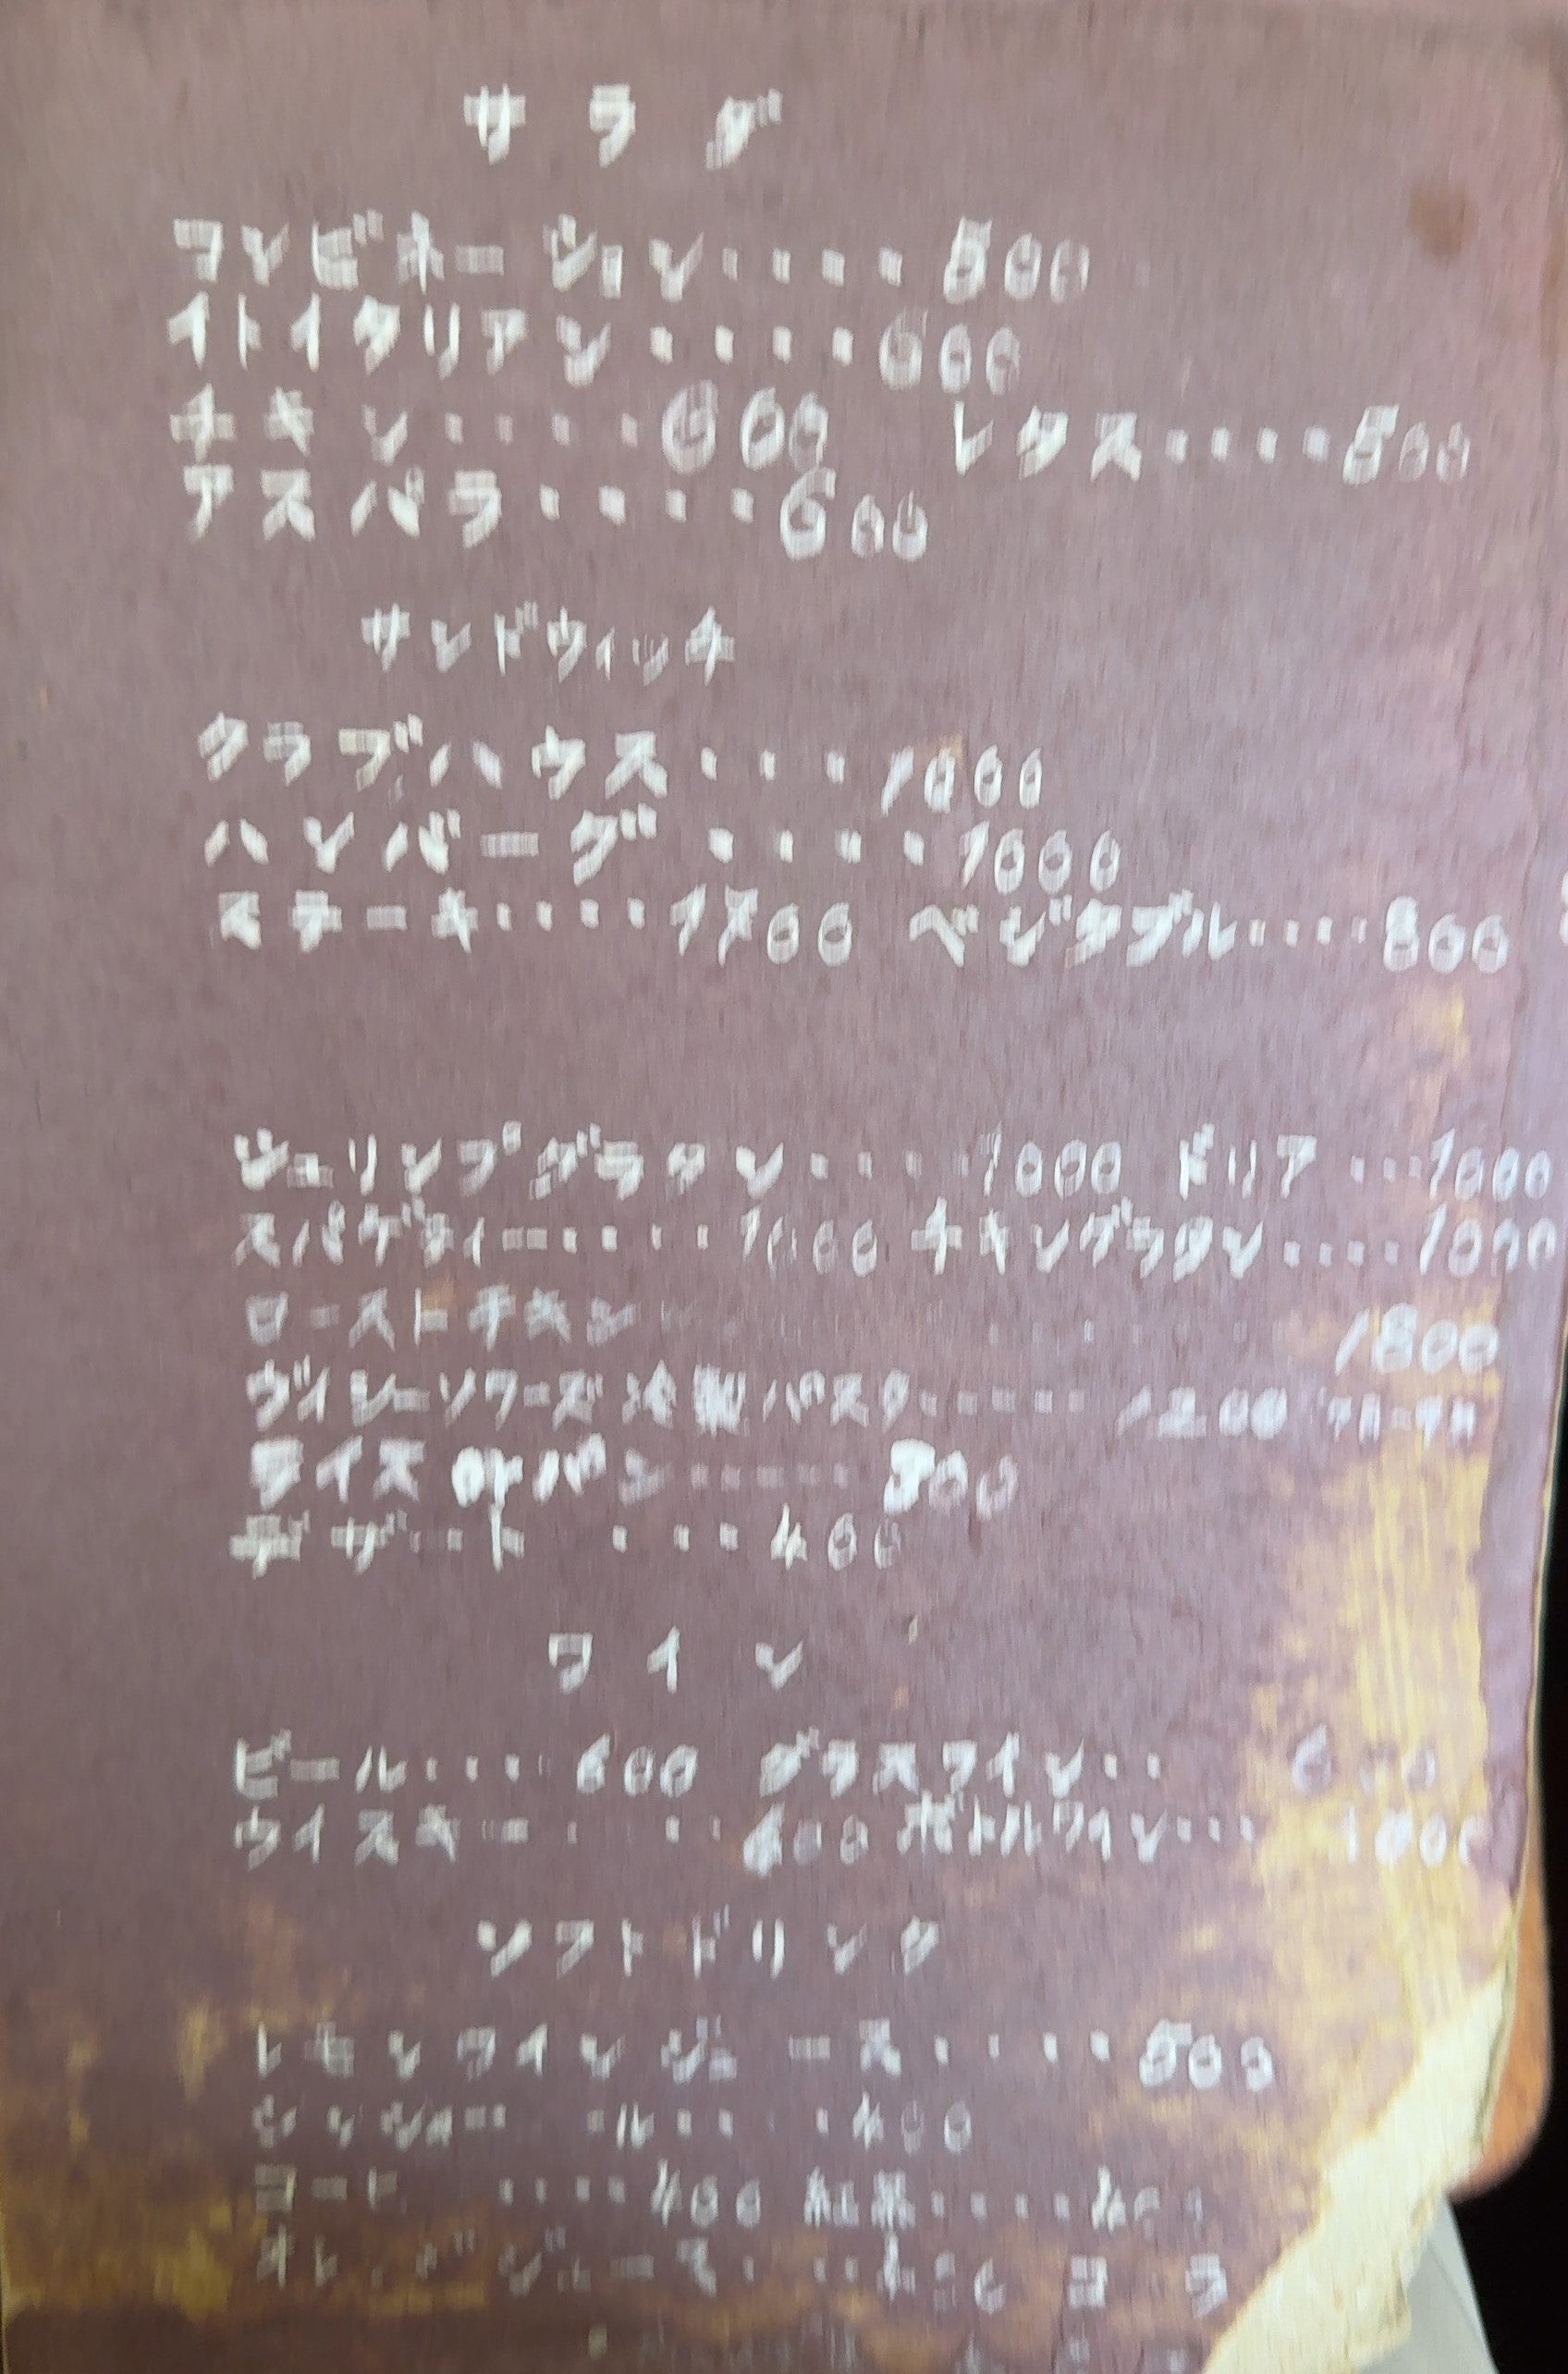 サラダ
コンビネーション････500
イトイタリアン････600
チキン････600 レタス････500
アスパラ････600
サンドウィッチ
クラブハウス･･･1000
ハンバーグ････1000
ステーキ････1700 ベジタブル････800
シュリンプグラタン････1000 ドリア･･･1000
スパゲティー････1000 チキングラタン････1000
ローストチキン 1800
ヴィシーソワーズ冷製パスタ･････1200
ライスorパン･････300
デザート ････400
ワイン
ビール････600 グラスワイン･･ 600
ウイスキー･ ･･600 ボトルワイン･･･
ソフトドリンク
レモンワインジュース････500
ジンジャーエール･･ ･400
コーヒー ････400 紅茶････400
オレンジジュース･ ･･ コーラ